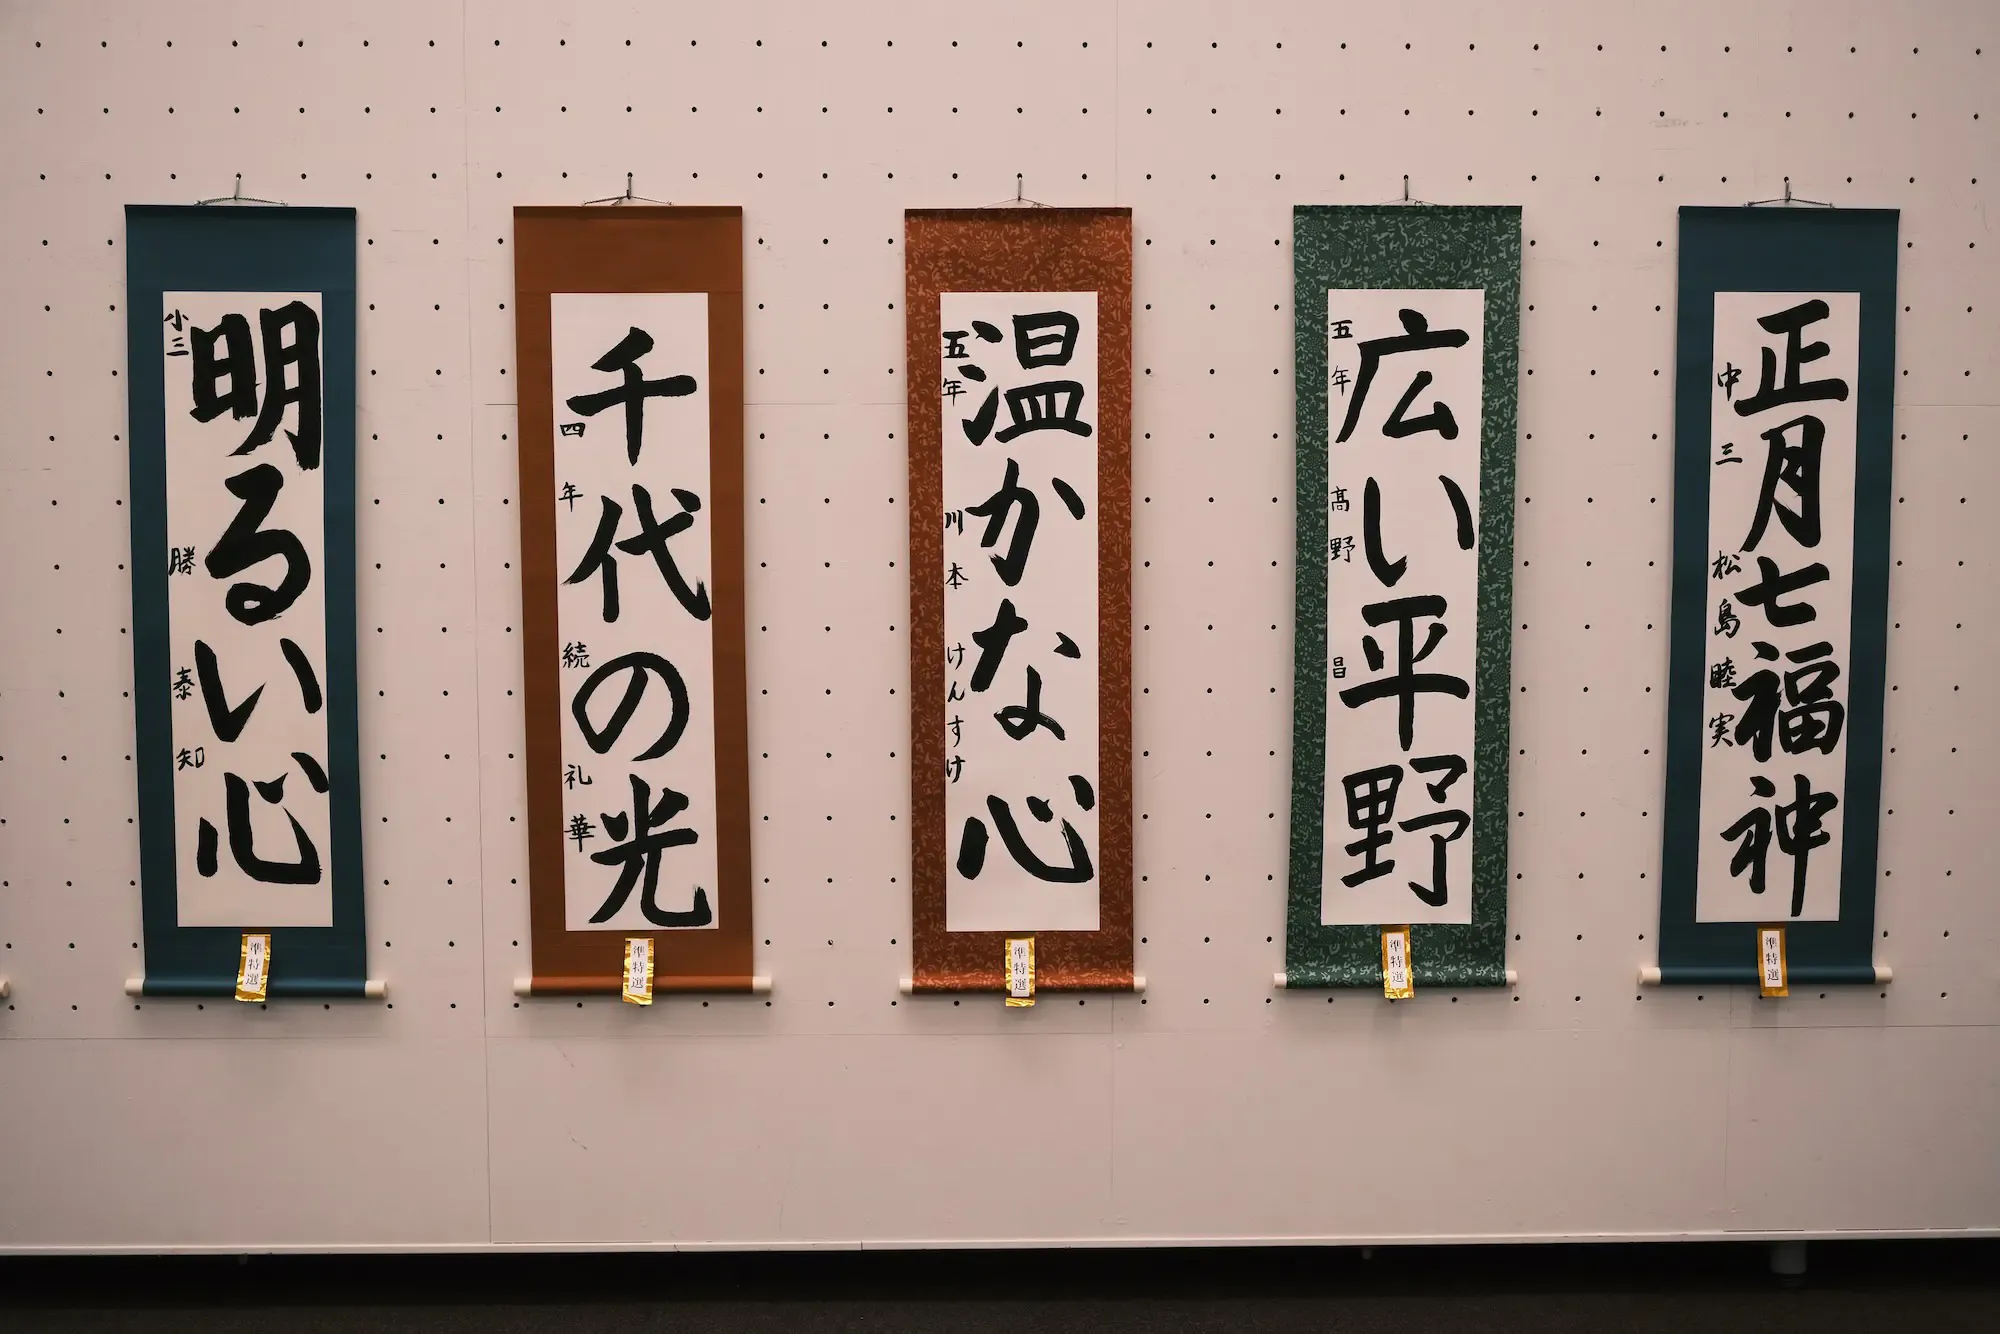 明るい心
小三 勝 泰知
準特選
千代の光
四年 続 礼華
準特選
温かな心
五年 川本 けんすけ
準特選
広い平野
五年 高野 昌
準特選
正月七福神
中三 松島 睦実
準特選